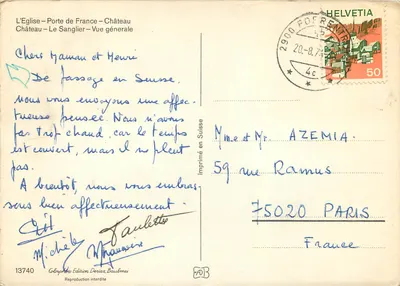 L'Eglise – Porte de France – Château
Château – Le Sanglier – Vue générale
Chers Maman et Henri
De passage en Suisse
nous vous envoyons une affec-
tueuse pensée. Nous n'avons
pas trop chaud, car le temps
est couvert, mais il ne pleut
pas.
A bientôt, nous vous embras-
sons bien affectueusement.
Paulette
Michèle
13740
Reproduction interdite
Imprimé en Suisse
HELVETIA
50
2900 PORRENTRUY
20.-8.7
4c
Mme et Mr. AZEMIA.
59 rue Ramus
75020 PARIS
France